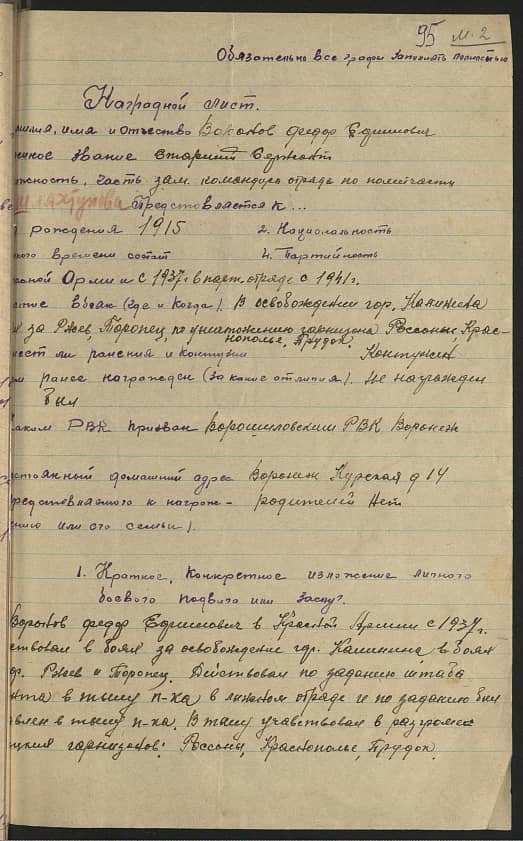 95 м. 2
Обязательно все графы заполнять полностью
Наградной лист.
милия, имя и отчество Воронов Федор Ефимович
нское звание старший сержант
жность, часть зам. командира отряда по политчасти
Шляхтунова Представляется к ...
рождения 1915 2. Национальность
кого времени состоит 4. Партийность
сной Армии с 1937 г в парт. отряде с 1941 г.
стие в боях (где и когда). В освобождении гор. Калинина
за Ржев, Торопец, по уничтожению гарнизона Россоны, Крас-
нополье, Прудок.
меет ли ранения и контузии Контужен
ем ранее награжден (за какие отличия). Не награжден
был
каким РВК призван Ворошиловским РВК Воронеж
стоянный домашний адрес Воронеж Курская д 14
редставляемого к награж- родителей нет
ению или его семьи).
1. Краткое, конкретное изложение личного
боевого подвига или заслуг.
Воронов Федор Ефимович в Красной Армии с 1937 г.
ствовал в боях за освобождение гор. Калинина в боях
р. Ржев и Торопец. Действовал по заданию штаба
нта в тылу п-ка в лыжном отряде и по заданию был
авлен в тылу п-ка. В тылу учавствовал в разгроме
цких гарнизонов: Россоны, Краснополье, Прудок.